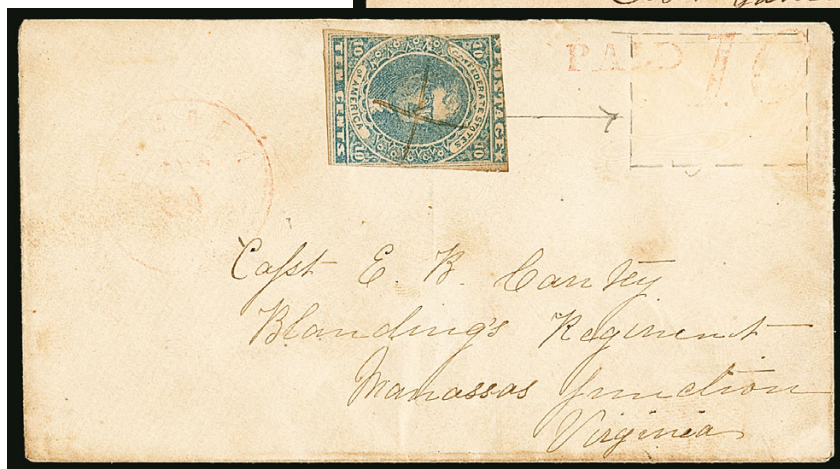 PAID 10
POSTAGE
CONFEDERATE STATES
OF AMERICA
TEN CENTS
10 10
10 10
Capt E. B. Cantey
Blanding's Regiment
Manassas Junction
Virginia